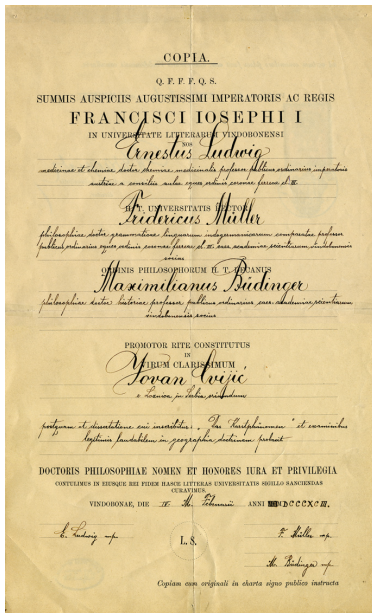 COPIA.
Q. F. F. F. Q. S.
SUMMIS AUSPICIIS AUGUSTISSIMI IMPERATORIS AC REGIS
FRANCISCI IOSEPHI I
IN UNIVERSITATE LITTERARUM VINDOBONENSI
NOS
Ernestus Ludwig
medicinae et chemiae doctor chemiae medicinalis professor publicus ordinarius imperatoris
austriae a consiliis aulae eques ordinis coronae ferreae cl. III.
H. T. UNIVERSITATIS RECTOR
Fridericus Müller
philosophiae doctor grammaticae linguarum indogermanicarum comparatae professor
publicus ordinarius eques ordinis coronae ferreae cl. III. caes. academiae scientiarum vindobonensis
socius
ORDINIS PHILOSOPHORUM H. T. DECANUS
Maximilianus Büdinger
philosophiae doctor historiae professor publicus ordinarius caes. academiae scientiarum
vindobonensis socius
PROMOTOR RITE CONSTITUTUS
IN
VIRUM CLARISSIMUM
Jovan Cvijić
e Loznica in Serbia oriundum
postquam et dissertatione cui inscribitur: „Das Karstphänomen" et examinibus
legitimis laudabilem in geographia doctrinam probavit
DOCTORIS PHILOSOPHIAE NOMEN ET HONORES IURA ET PRIVILEGIA
CONTULIMUS IN EIUSQUE REI FIDEM HASCE LITTERAS UNIVERSITATIS SIGILLO SANCIENDAS
CURAVIMUS.
VINDOBONAE, DIE IV. M. Februarii ANNI MDCCCXCIII.
E. Ludwig mp
L. S.
F. Müller mp.
M. Büdinger mp
Copiam cum originali in charta signo publico instructa